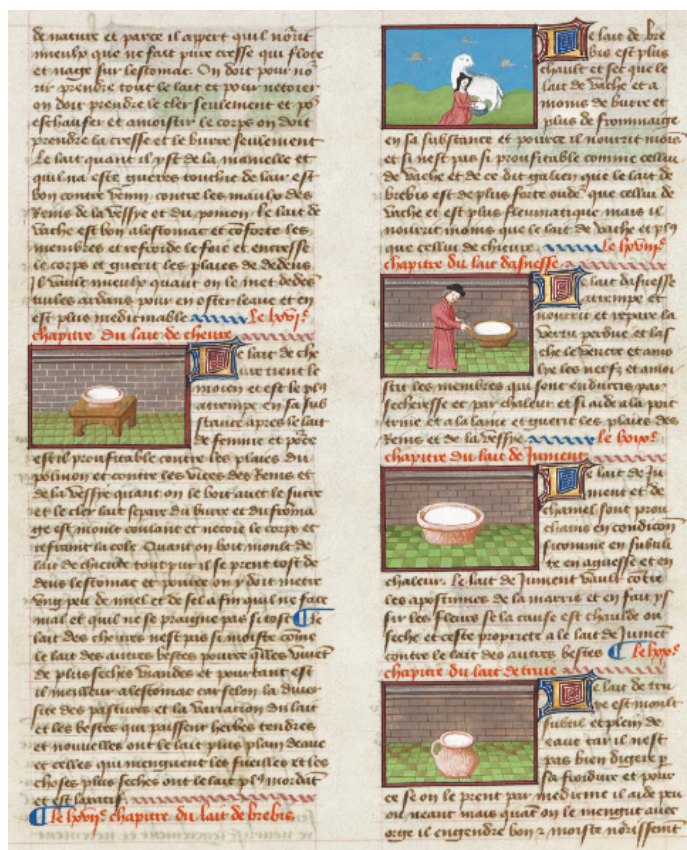 de nature et parce il appert quil nourit
mieulx que ne fait pure cresse qui flote
et nage sur lestomac. On doit pour no˜
rir prendre tout le lait et pour netoier
on doit prendre le cler seulement et po᷒
eschaufer et amoistir le corps on doit
prendre la cresse et le burre seulement
Le lait quant il yst de la mamelle et
quil na este gueres touchie de lair est
bon contre venin contre les maulx des
Reins de la vessye et du pomon. le lait de
vache est bon alestomac et cōforte les
membres et refroide le foie et encresse
le corps et guerit les plaies de dedens
Il vault mieulx quant on le met dedēs
tuiles ardans pour en oster leaue et en
est plus medicinable Le lxviᵉ
chapitre du lait de chieure
Le lait de che
ure tient le
moien et est le pl᷒
attrempe en sa sub
stance apres le lait
de femme et pōce
est il proufitable contre les plaies du
polmon et contre les vices des Reins et
de la vessye quant on le boit auec le sucre
et le cler lait separe du burre et du froma
ge est moult coulant et netoie le corps et
refraint la cole. Quant on boit moult de
lait de chieure tout pur il se prent tost de
dens lestomac et pource on y doit metre
vng peu de miel et de sel a fin quil ne face
mal et quil ne se praigne pas si tost ¶ le
lait des chieures nest pas si moiste cōme
le lait des autres bestes pource q̄lles viuēt
de plus seches viandes et pourtant est
il meilleur alestomac car selon la diuer
site des pastures et la variation du lait
et les bestes qui paissent herbes tendres
et nouuelles ont le lait plus plain deaue
et celles qui menguent les fueilles et les
choses plus seches ont le lait pl᷒ mordāt
et est laxatif.
¶ Le lxviiᵉ chapitre du lait de brebis
Le lait de bre
bis est plus
chault et sec que le
lait de vache et a
moins de burre et
plus de frommaige
en sa substance et pource il nourrit mois
et si nest pas si proufitable comme cellui
de vache et de ce dit galien que le lait de
brebis est de plus forte oudeʳ que cellui de
vache et est plus fleumatique mais il
nourrit moins que le lait de vache et pl᷒
que cellui de chieure. Le lxviiiᵉ
chapitre du lait dasnesse
Le lait dasnesse
attrempe et
nourrit et repare la
vertu perdue et las
che le ventre et amo
lie les nerfz et amoi
stit les membres qui sont enduircis par
secheresse et par chaleur et si aide ala poit
trine et ala laine et guerit les plaies des
Reins et de la vessye Le lxixᵉ
chapitre du lait de Jument
Le lait de Ju
ment et de
chamel sont prou
chains en condicōn
sicomme en subtili
te en aguesse et en
chaleur. Le lait de Jument vault cōtre
les apostumes de la marris et en fait ys
sir les fleurs se la cause est chaulde ou
seche et ceste propriete a le lait de Jumēt
contre le lait des autres bestes ¶ Le lxxᵉ
chapitre du lait de truie
Le lait de tru
ye est moult
subtil et plein de
eaue car il nest
pas bien digere p̲
sa froidure et pour
ce se on le prent par medicine il aide peu
ou neant mais quāt on le mengut auec
orge il engendre bon ⁊ moiste nōrissemēt